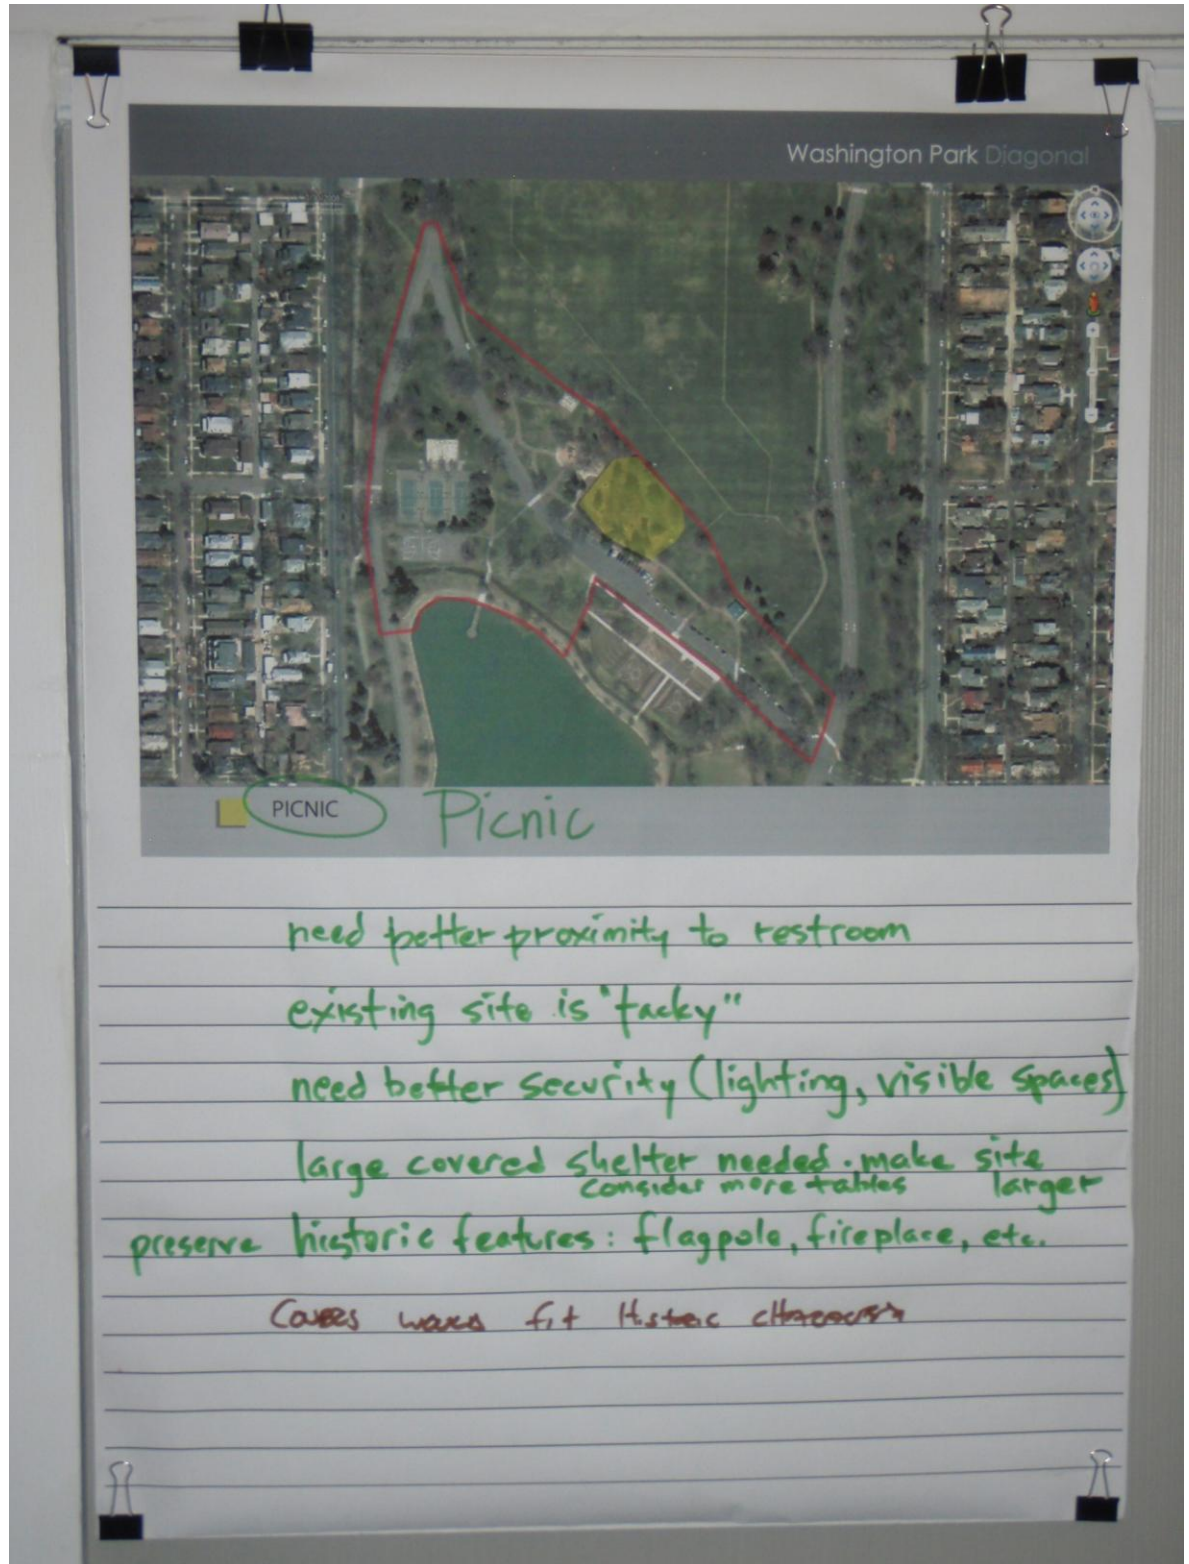 Washington Park Diagonal
PICNIC Picnic
need better proximity to restroom
existing site is "tacky"
need better security (lighting, visible spaces)
large covered shelter needed. make site
consider more tables larger
preserve historic features: flagpole, fireplace, etc.
fit Historic